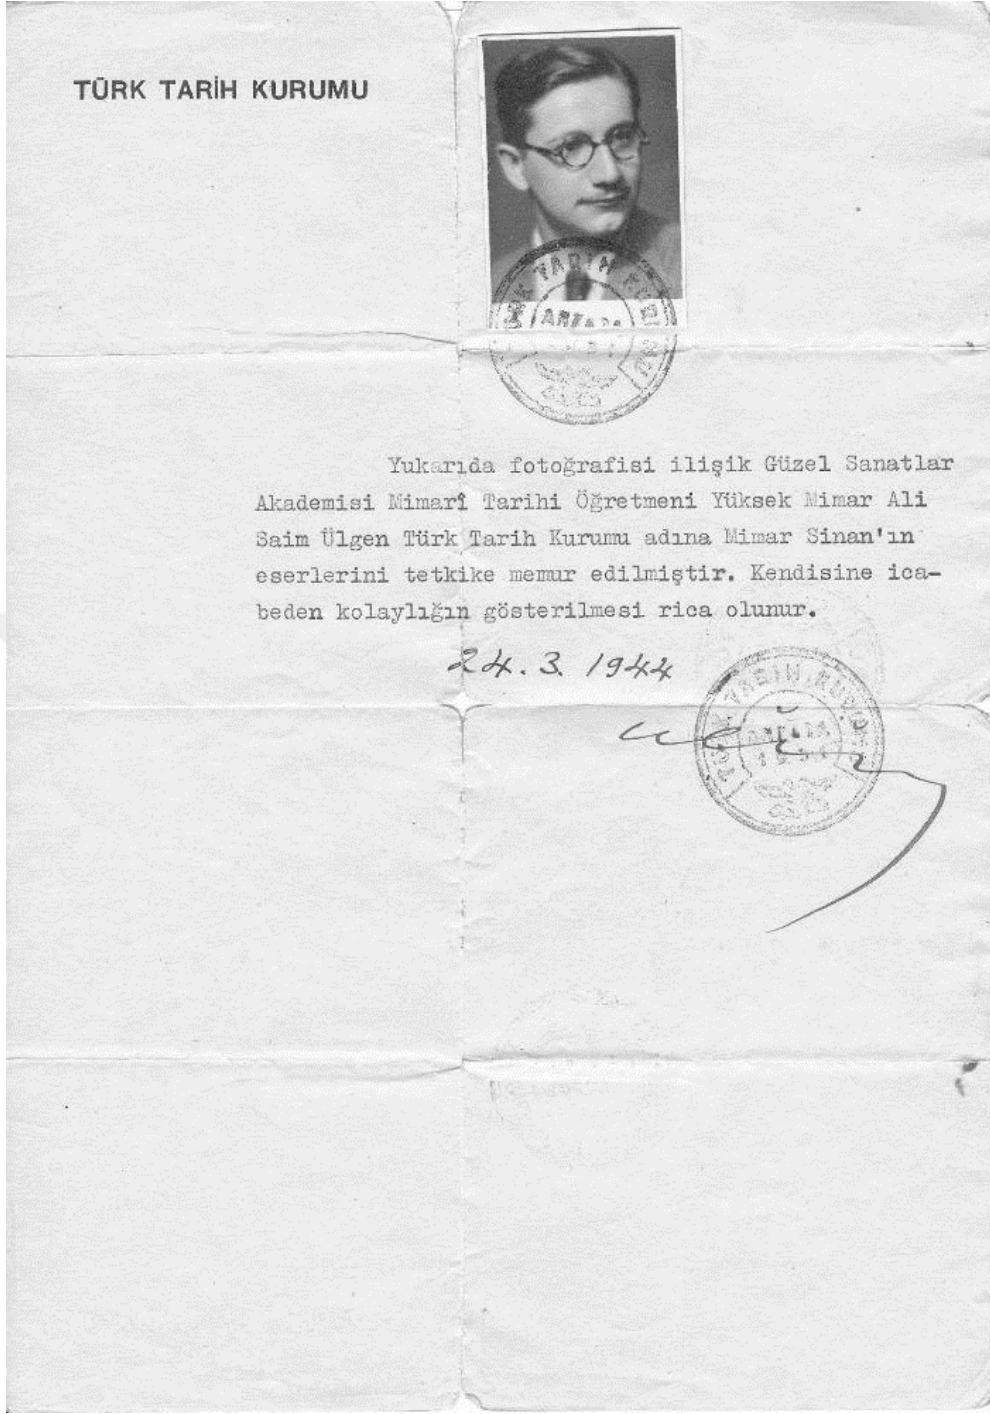 TÜRK TARİH KURUMU
TÜRK TARİH KURUMU
ANKARA
Yukarıda fotoğrafisi ilişik Güzel Sanatlar
Akademisi Mimarî Tarihi Öğretmeni Yüksek Mimar Ali
Saim Ülgen Türk Tarih Kurumu adına Mimar Sinan'ın
eserlerini tetkike memur edilmiştir. Kendisine ica-
beden kolaylığın gösterilmesi rica olunur.
24.3. 1944
TÜRK TARİH KURUMU
ANKARA